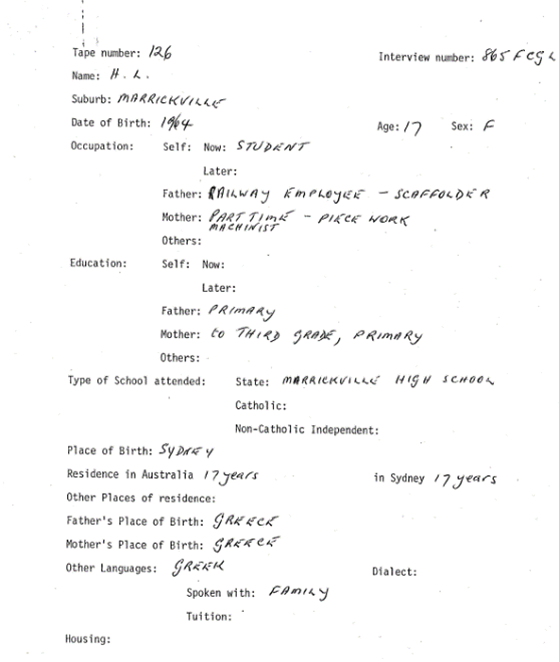 Tape number: 126
Interview number: 865 FCGL
Name: H. L.
Suburb: MARRICKVILLE
Date of Birth: 1964
Age: 17 Sex: F
Occupation: Self: Now: STUDENT
Later:
Father: RAILWAY EMPLOYEE - SCAFFOLDER
Mother: PART TIME - PIECE WORK
MACHINIST
Others:
Education: Self: Now:
Later:
Father: PRIMARY
Mother: to THIRD GRADE, PRIMARY
Others:
Type of School attended: State: MARRICKVILLE HIGH SCHOOL
Catholic:
Non-Catholic Independent:
Place of Birth: SYDNEY
Residence in Australia 17 years in Sydney 17 years
Other Places of residence:
Father's Place of Birth: GREECE
Mother's Place of Birth: GREECE
Other Languages: GREEK Dialect:
Spoken with: FAMILY
Tuition:
Housing: